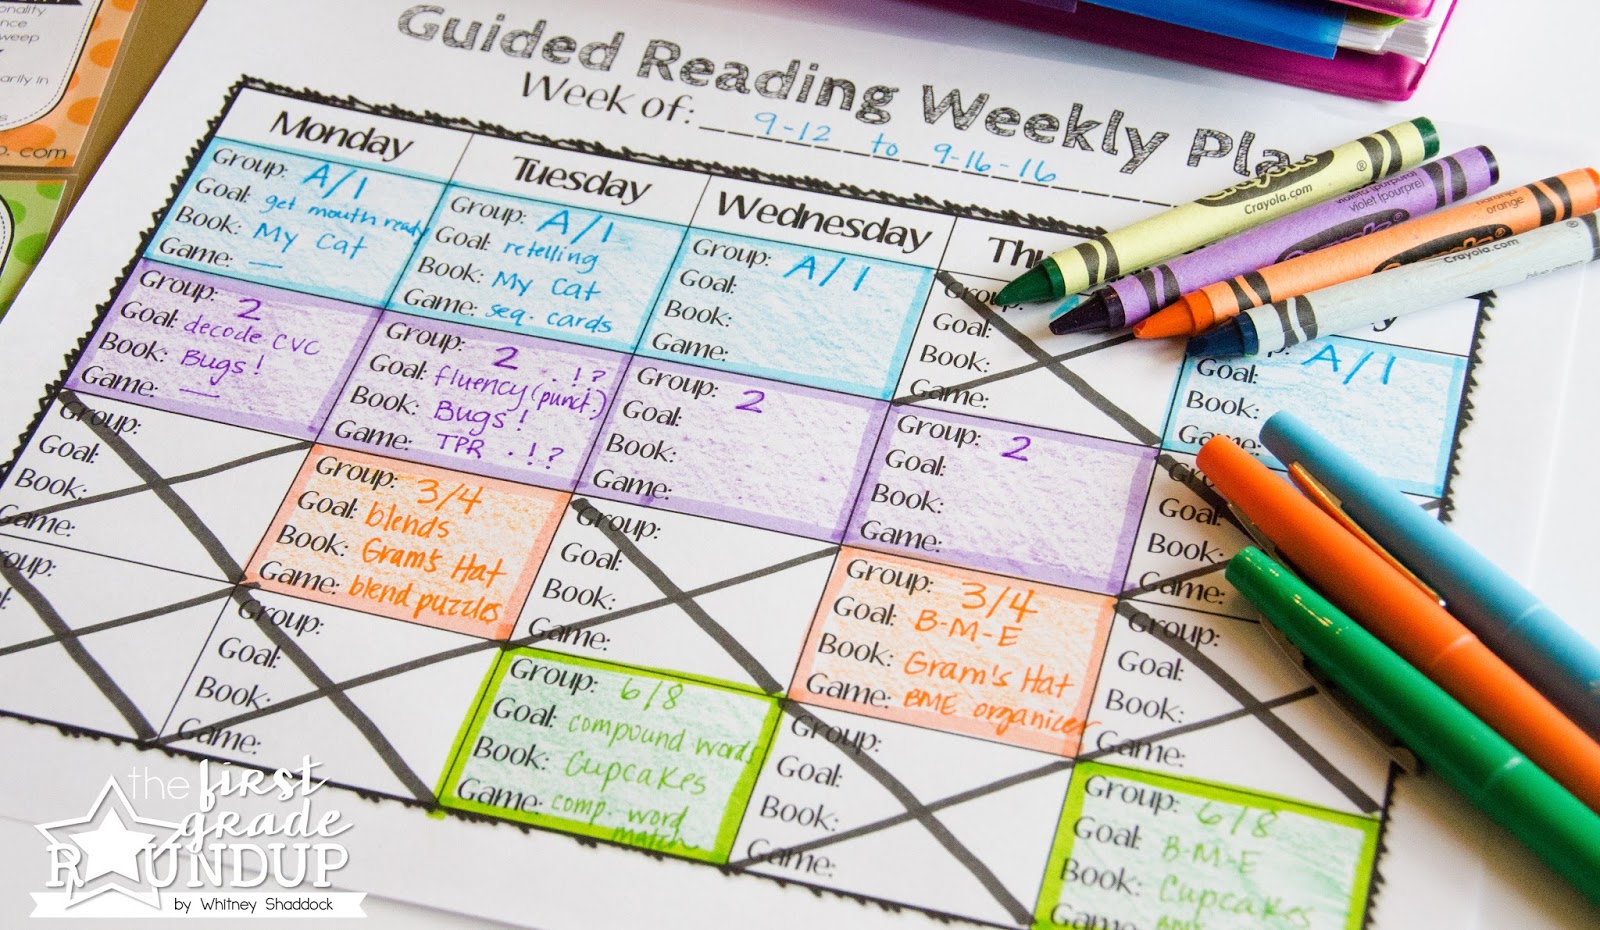 onality
nce
weep
arily in
s
o. com
Guided Reading Weekly Pla
Week of: 9-12 to 9-16-16
Monday
Tuesday
Wednesday
Thu
y
Group: A/1
Goal: get mouth ready
Book: My Cat
Game: —
Group: A/1
Goal: retelling
Book: My Cat
Game: seq. cards
Group: A/1
Goal:
Book:
Game:
Group:
Goal:
Book:
Game:
A/1
Goal:
Book:
Game:
Group: 2
Goal: decode CVC
Book: Bugs!
Game: —
Group: 2 . ! ?
Goal: fluency (punct.)
Book: Bugs!
Game: TPR . ! ?
Group: 2
Goal:
Book:
Game:
Group: 2
Goal:
Book:
Game:
Goal:
Book:
Game:
Group:
Goal:
Book:
Game:
Group: 3/4
Goal: blends
Book: Gram's Hat
Game: blend puzzles
Group:
Goal:
Book:
Game:
Group: 3/4
Goal: B-M-E
Book: Gram's Hat
Game: BME organizer
Group:
Goal:
Book:
Game:
oup:
Group:
Goal:
Book:
Game:
Group: 6/8
Goal: compound words
Book: Cupcakes
Game: comp. word
match
Group:
Goal:
Book:
Game:
Group: 6/8
Goal: B-M-E
Book: Cupcakes
Game:
Crayola
Crayola.com
violet (purpura)
violet (pourpre)
orange
Crayola.com
the first
grade
ROUNDUP
by Whitney Shaddock